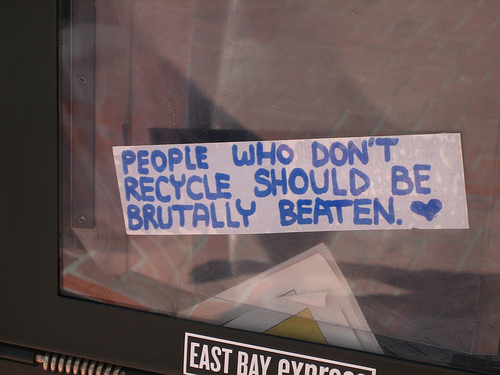 PEOPLE WHO DON'T
RECYCLE SHOULD BE
BRUTALLY BEATEN.
EAST BAY express